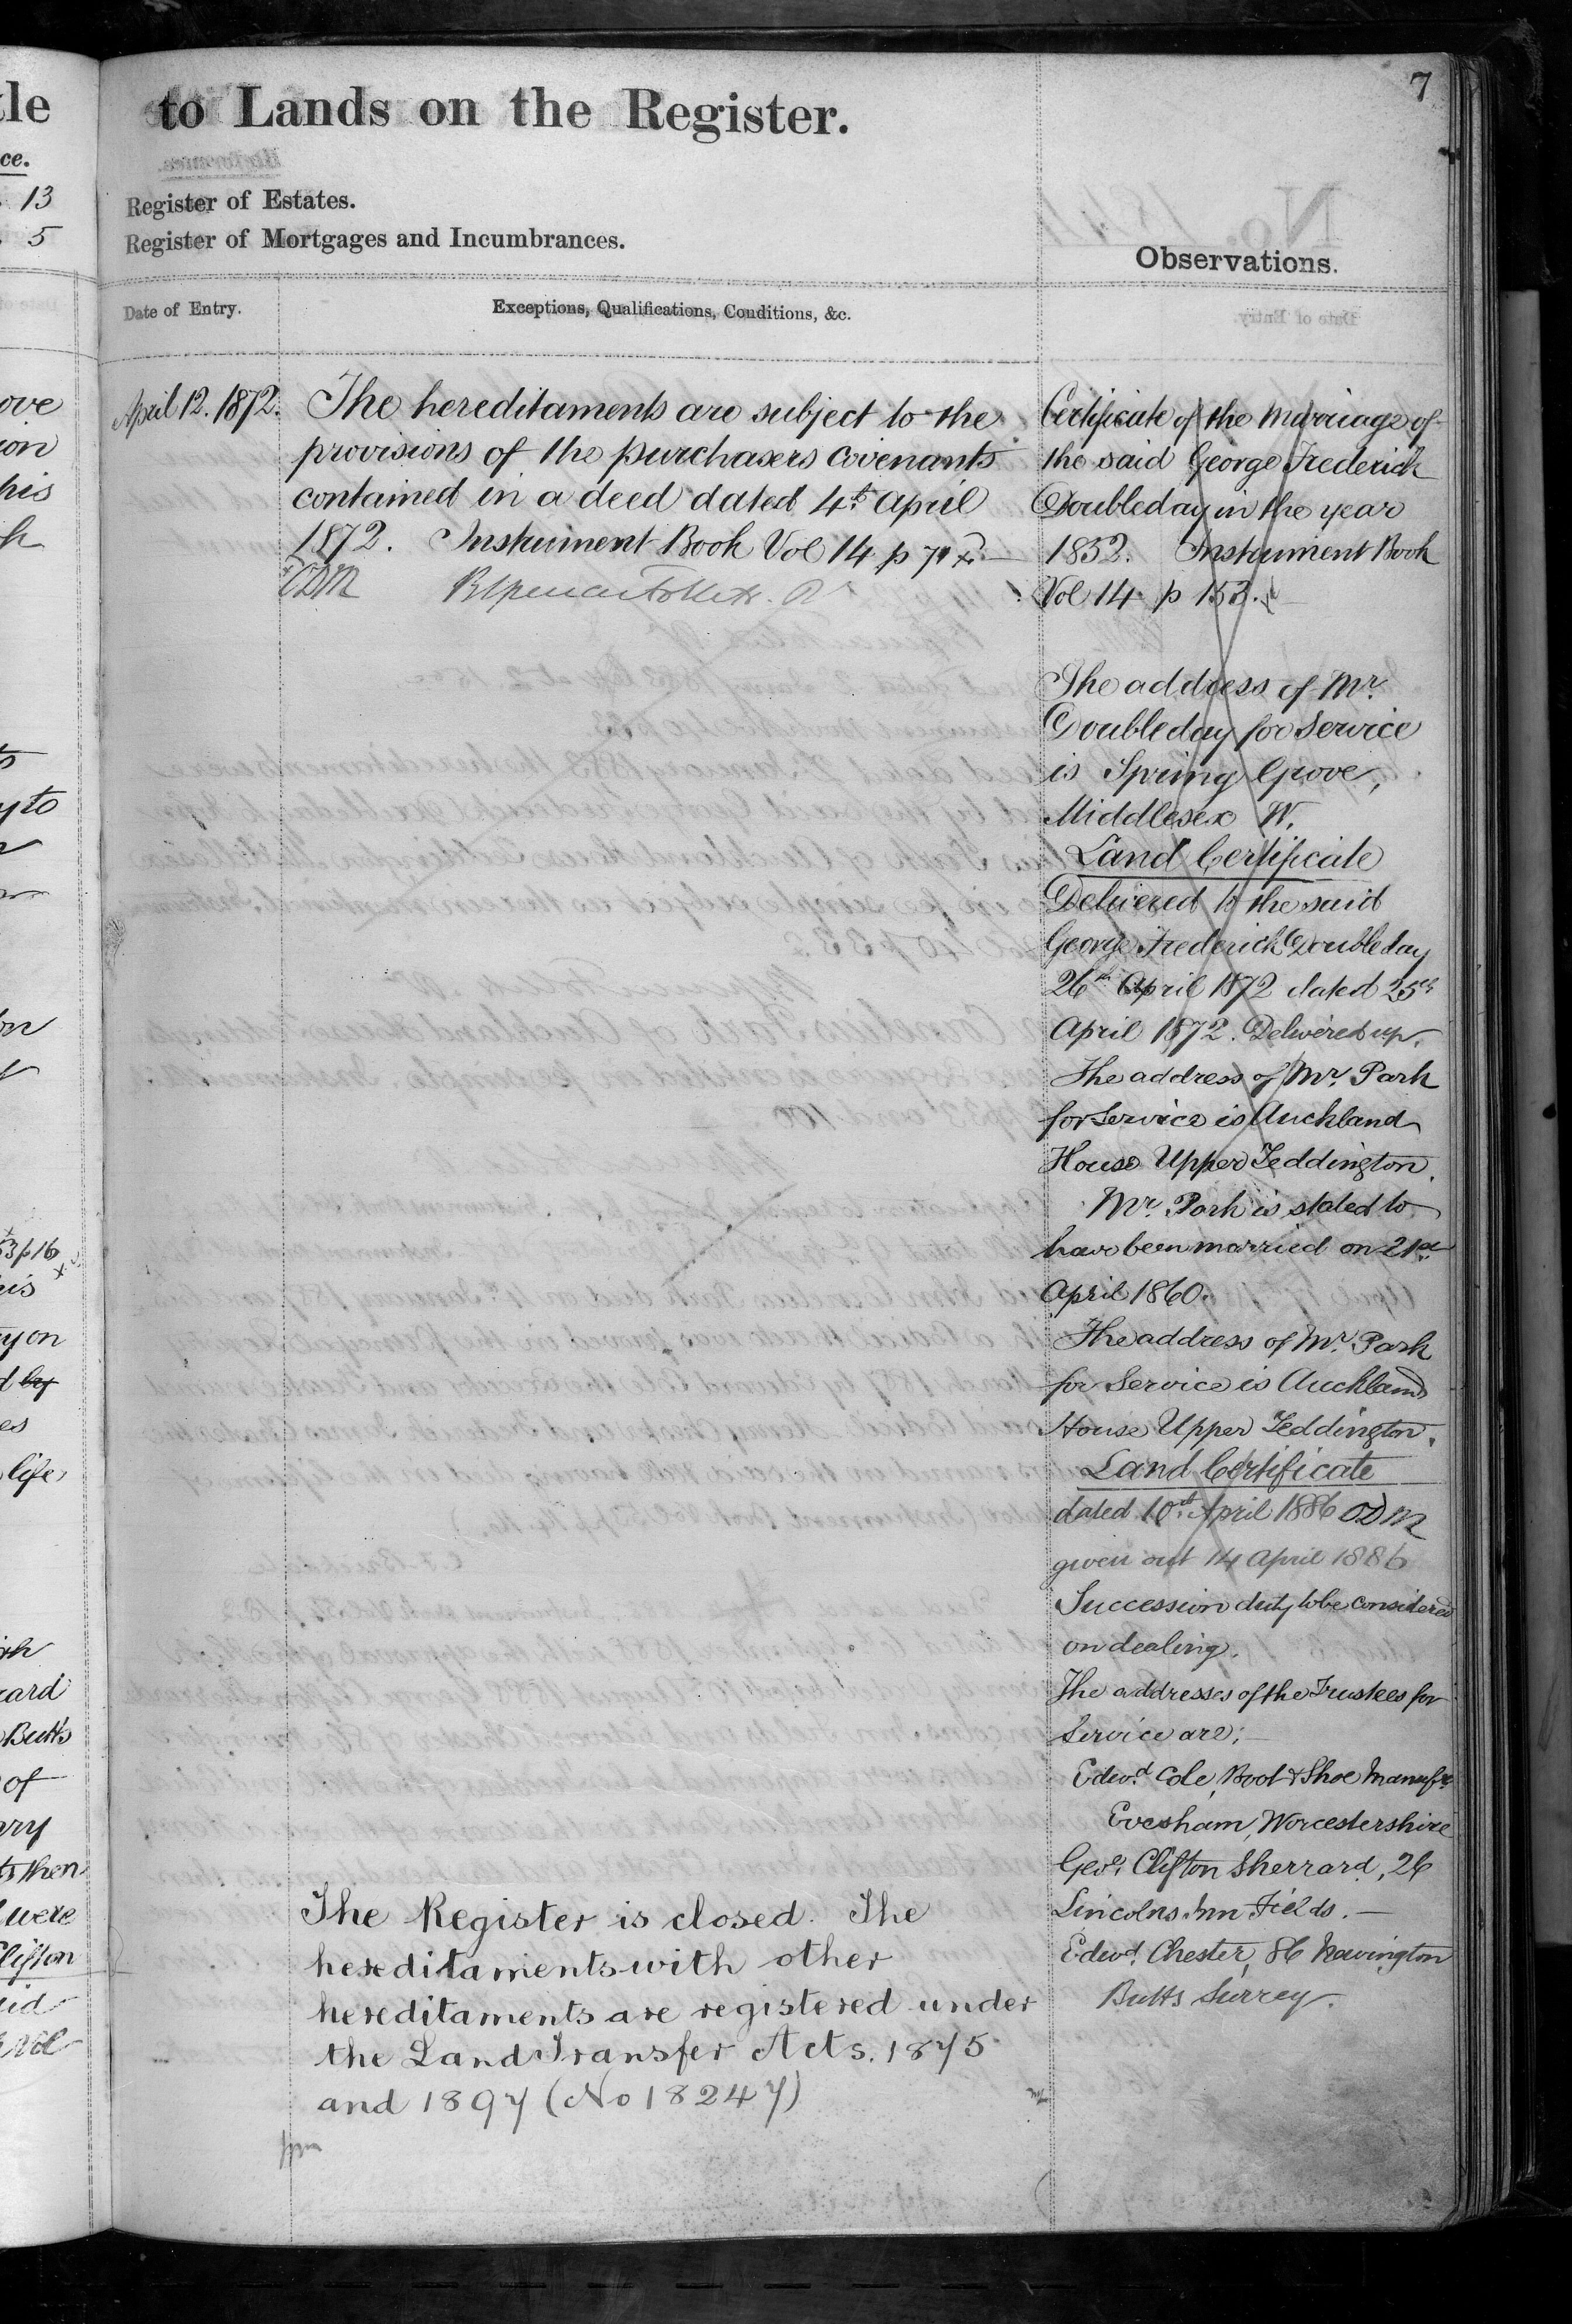 to Lands on the Register.
7
Register of Estates.
Register of Mortgages and Incumbrances.
Observations.
Date of Entry.
Exceptions, Qualifications, Conditions, &c.
April 12. 1872.
The hereditaments are subject to the
provisions of the purchasers covenants
contained in a deed dated 4th April
1872. Instrument Book Vol 14 p
ODM
Certificate of the Marriage of
the said George Frederick
Doubleday in the year
1852. Instrument Book
Vol 14 p 152.
The address of Mr.
Doubleday for Service
is Spring Grove,
Middlesex W.
Land Certificate
Delivered to the said
George Frederick Doubleday
26th April 1872 dated 25th
April 1872. Delivered up.
The address of Mr. Park
for Service is Auckland
House Upper Teddington.
Mr. Park is stated to
have been married on 21st
April 1860.
The address of Mr. Park
for Service is Auckland
House Upper Teddington.
Land Certificate
dated 10th April 1886 ODM
given out 14 April 1886
Succession duty to be considered
on dealing.
The addresses of the Trustees for
Service are:—
Edwd. Cole, Boot & Shoe Manufr.
Evesham, Worcestershire
Geo. Clifton Sherrard, 26
Lincolns Inn Fields.—
Edwd. Chester, 86 Newington
Butts Surrey.
The Register is closed. The
hereditaments with other
hereditaments are registered under
the Land Transfer Acts. 1875
and 1897 (No 18247)
tle
ce.
13
5
ove
ion
his
h
y to
3 p 16
his
y on
d by
es
life
ard
Butts
of
ary
then
were
Clifton
id